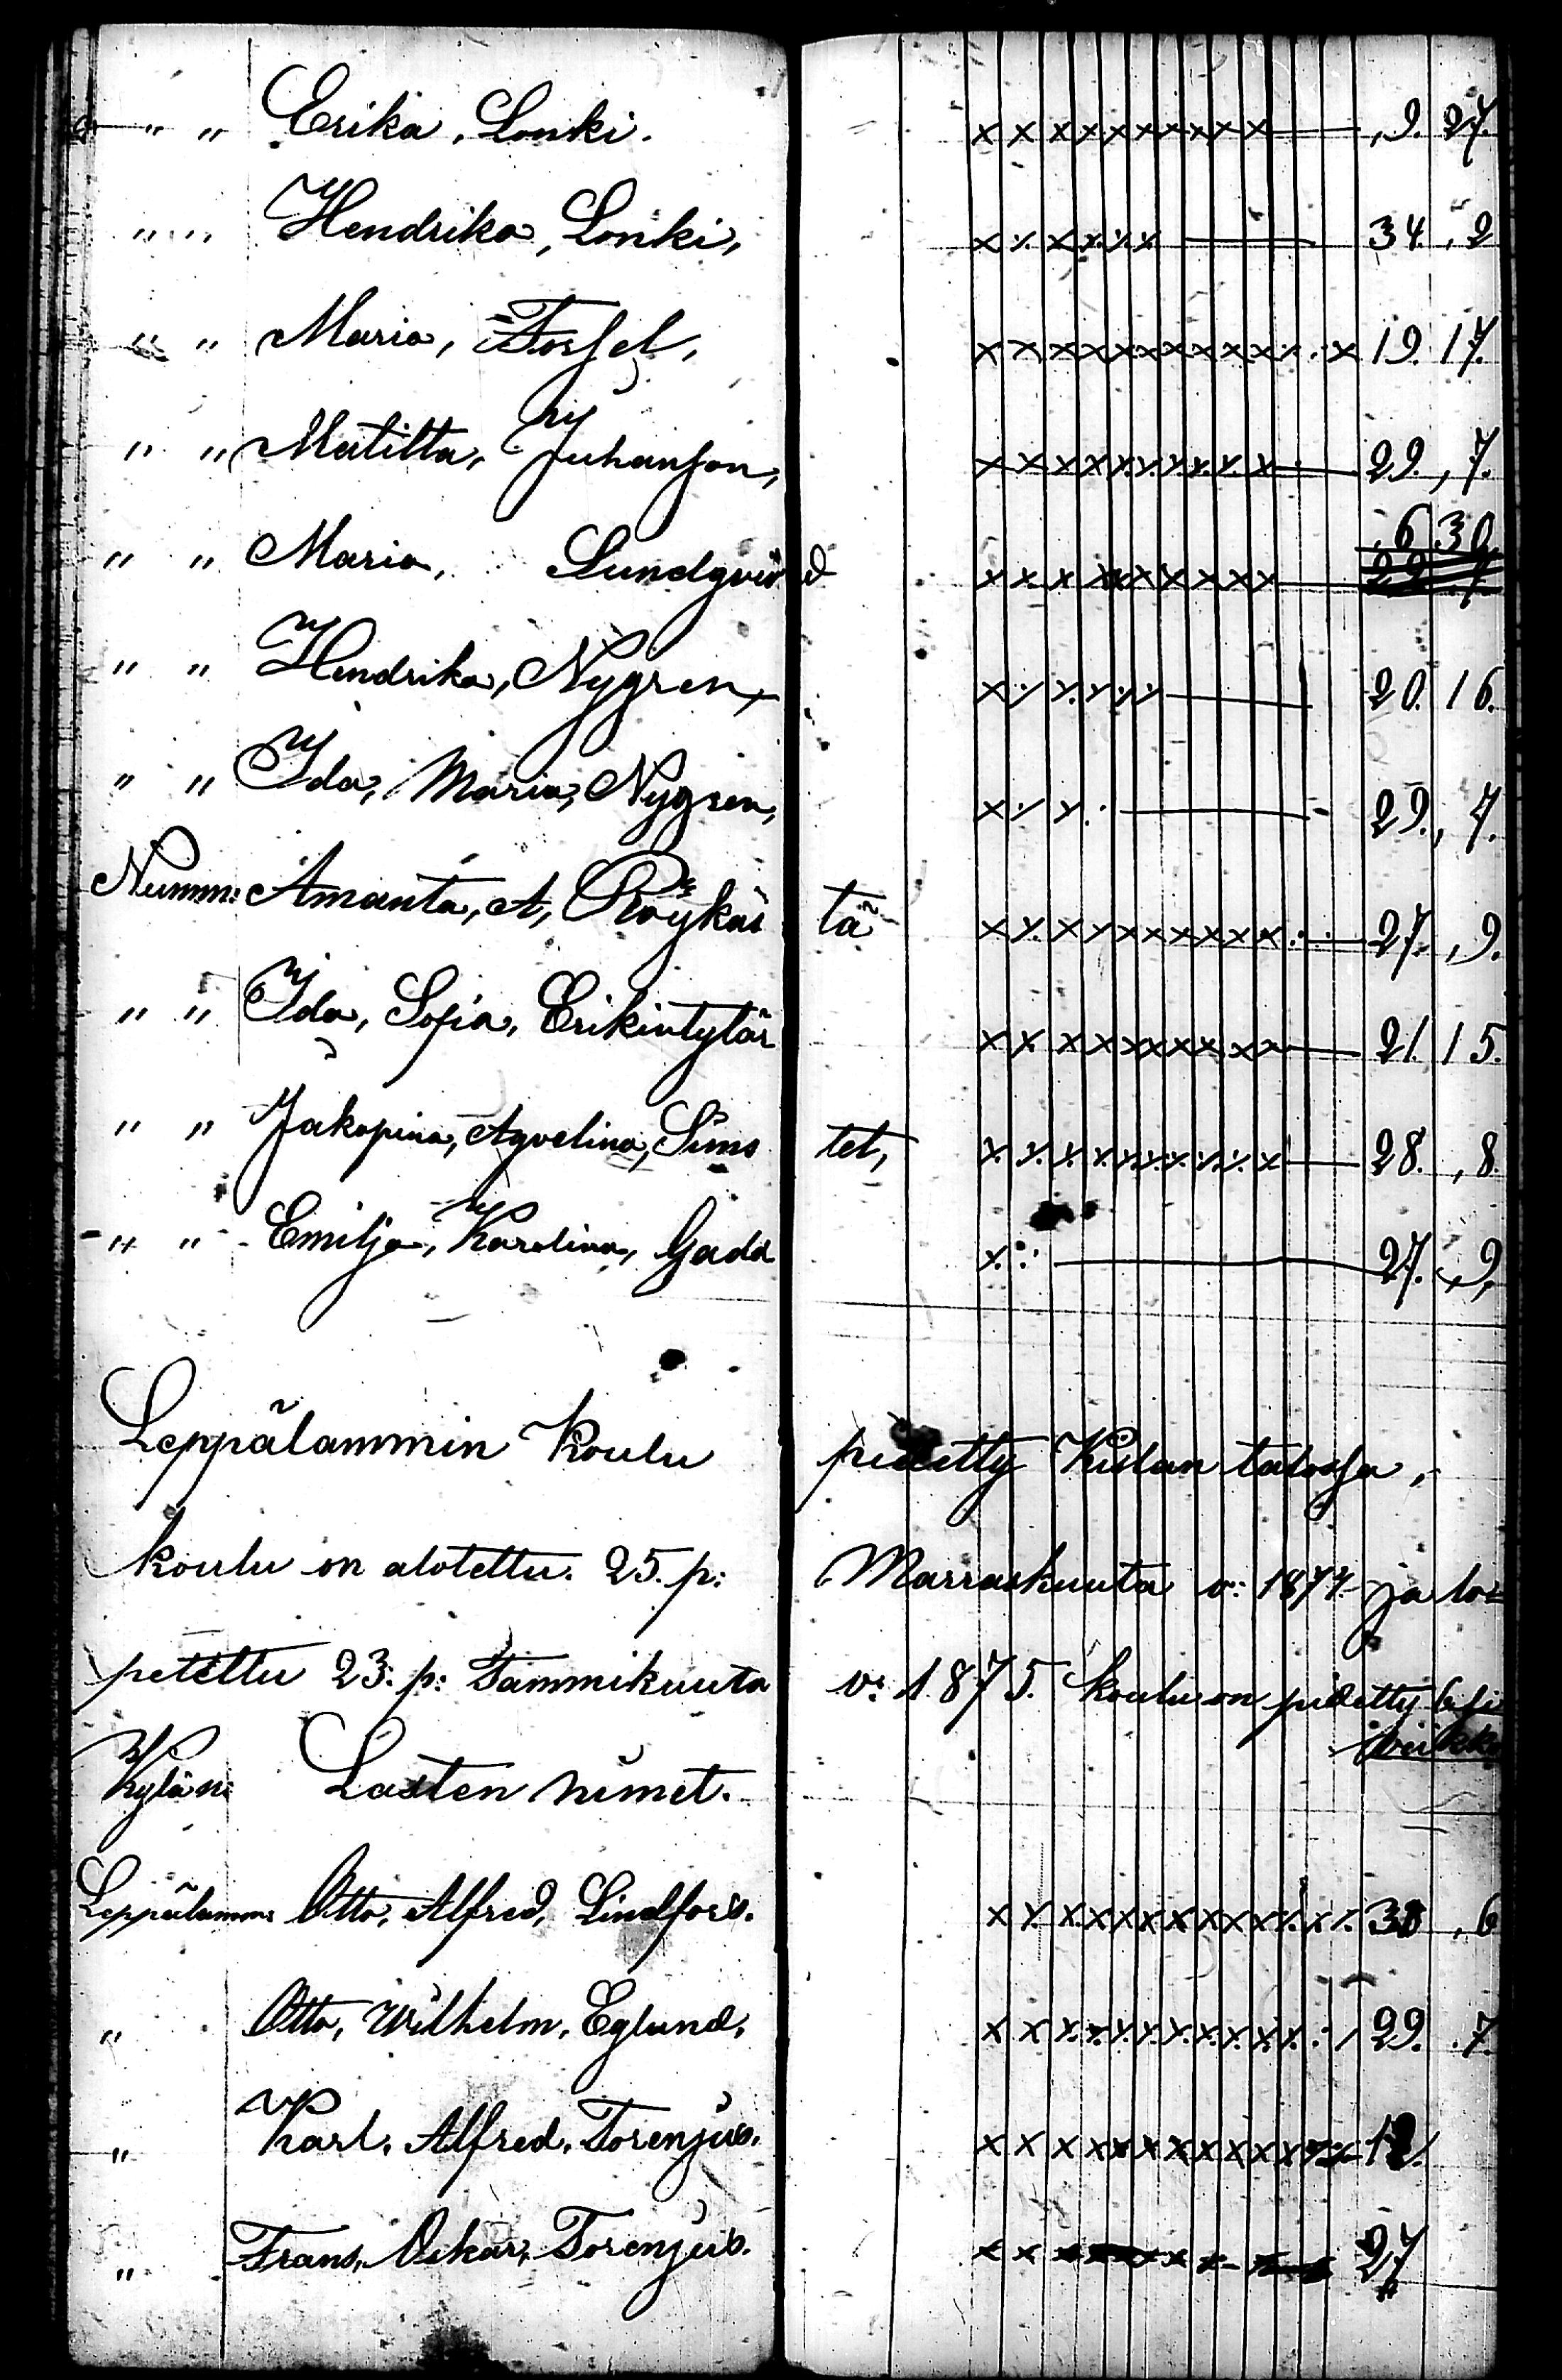 " " Erika, Lonki. x x x x x x x x x x , 9. 27.
" " Hendrika, Lonki, x x x x x x 34. , 2
" " Maria, Forsel, x x x x x x x x x x x . x 19. 17.
" " Matilta, Juhanson, x x x x x x x x x x 29. , 7.
, 6 30
" " Maria, Lundqvisd x x x x x x x x x x
" " Hendrika, Nygren, x x x x x x 20. 16.
" " Ida, Maria, Nygren, x x x . 29. , 7.
Numm: Amanta, A, Röykäs tä x x x x x x x x x x . . 27. , 9.
" " Ida, Sofia, Erikintytär x x x x x x x x x x 21. 15.
" " Jakopina, Agvelina, Sims tet, x x x x x x x x x x 28. , 8.
" " Emilja, Karolina, Gadd x : 27. , 9,
Leppälammin Koulu pidetty Kulan talossa,
koulu on alotettu. 25. p: Marraskuuta v: 1874 ja lo=
petettu 23. p: Tammikuuta v: 1875. koulu on pidetty 6 si
weikko
Kylän: Lasten nimet.
Leppälamm: Otto, Alfred, Lindfors. x x x x x x x x x x x x x 30 , 6
" Otto, Wilhelm, Eglund, x x x x x x x x x x x . / 29. . 7.
" Karl, Alfred, Torenjus. x x x x x x x x x x x x x
" Frans, Oskar, Torenjus. x x x x x x x 27